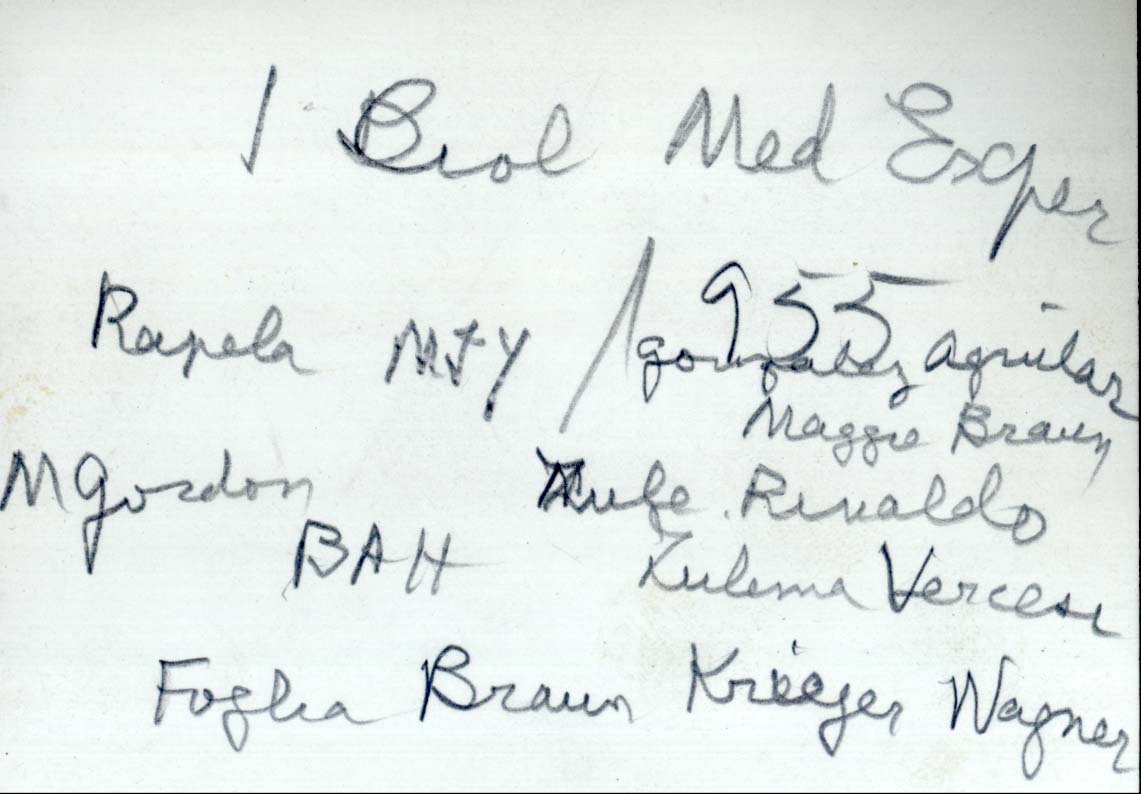 I Biol Med Exper
1955
Rapela MFY / gonzalez aguilar
Maggie Braun
M Gordon Rinaldo
BAH Zulema Vercesi
Foglia Braun Krieger Wagner